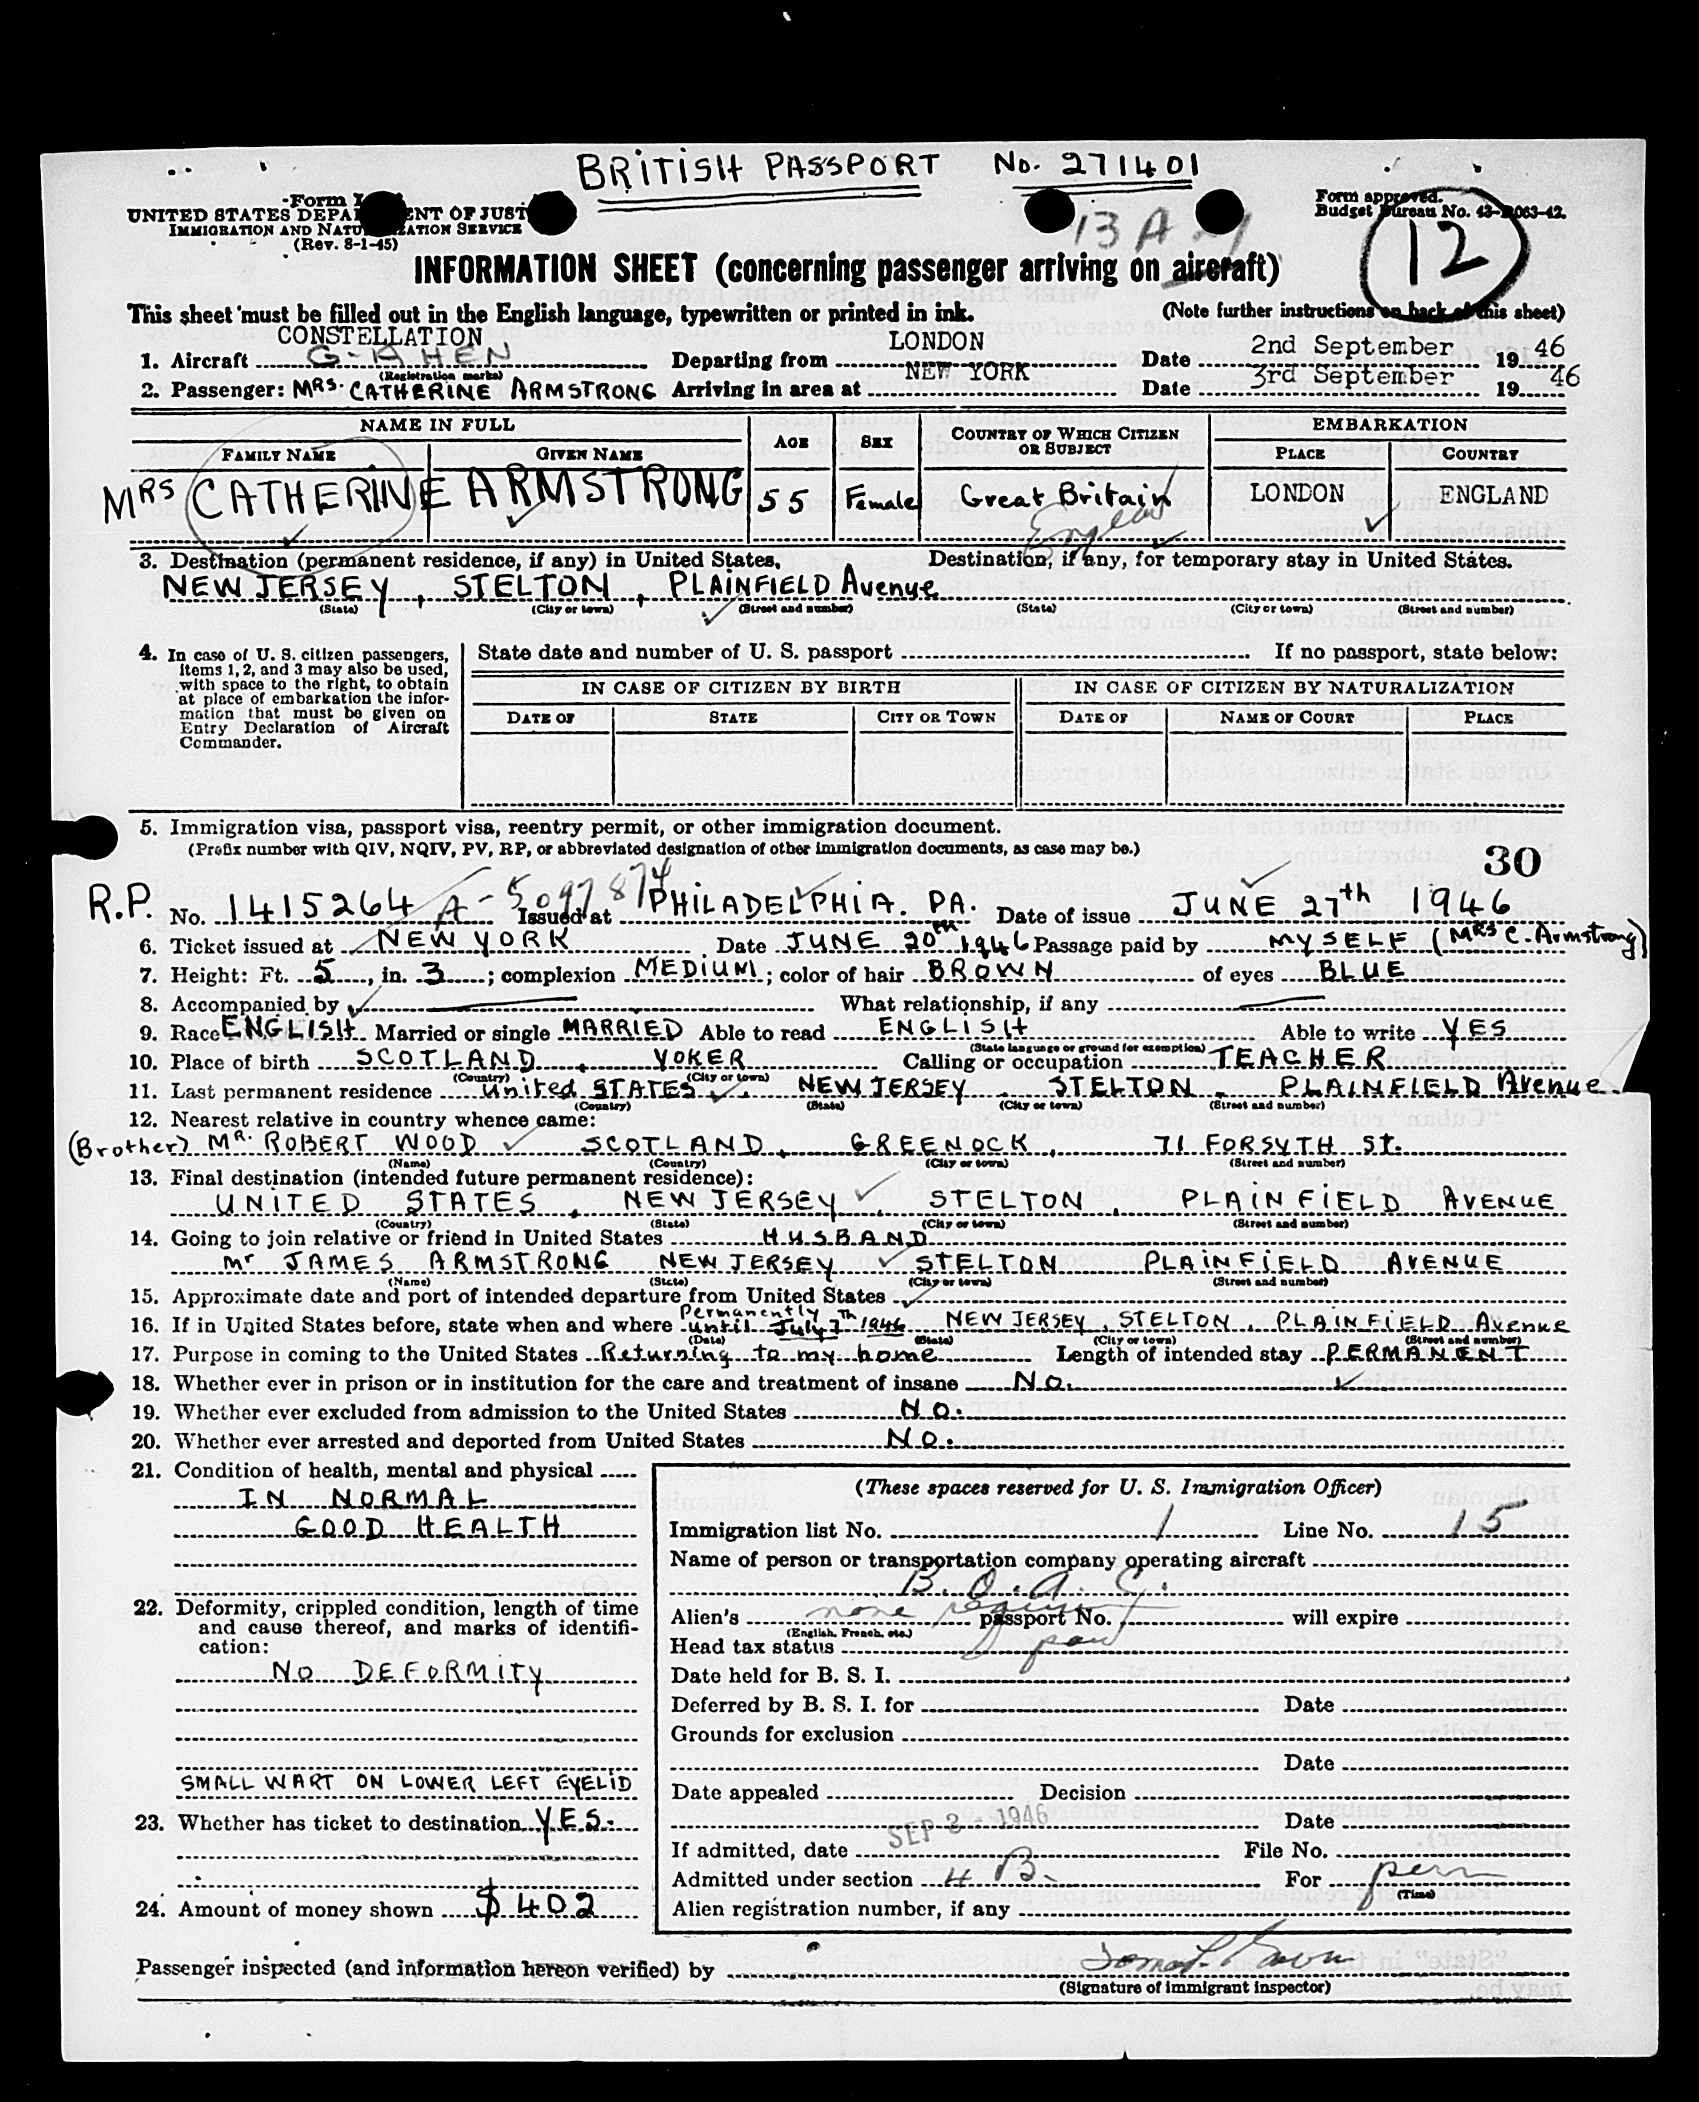 BRITISH PASSPORT No. 271401
Form
UNITED STATES DEPA ENT OF JUST
IMMIGRATION AND NATU ATION SERVICE
(Rev. 8-1-45)
Form approved.
Budget Bureau No. 43- 063-42.
13 A
12
INFORMATION SHEET (concerning passenger arriving on aircraft)
This sheet must be filled out in the English language, typewritten or printed in ink. (Note further instructions on back of this sheet)
CONSTELLATION LONDON 2nd September 46
1. Aircraft G-AHEN Departing from Date 19
(Registration marks) NEW YORK 3rd September 46
2. Passenger: MRS. CATHERINE ARMSTRONG Arriving in area at Date 19
NAME IN FULL AGE SEX COUNTRY OF WHICH CITIZEN OR SUBJECT EMBARKATION
FAMILY NAME GIVEN NAME PLACE COUNTRY
MRS CATHERINE ARMSTRONG 55 Female Great Britain LONDON ENGLAND
3. Destination (permanent residence, if any) in United States. Destination, if any, for temporary stay in United States.
NEW JERSEY, STELTON, PLAINFIELD Avenue
(State) (City or town) (Street and number) (State) (City or town) (Street and number)
4. In case of U. S. citizen passengers,
items 1, 2, and 3 may also be used,
with space to the right, to obtain
at place of embarkation the infor-
mation that must be given on
Entry Declaration of Aircraft
Commander.
State date and number of U. S. passport If no passport, state below:
IN CASE OF CITIZEN BY BIRTH IN CASE OF CITIZEN BY NATURALIZATION
DATE OF STATE CITY OR TOWN DATE OF NAME OF COURT PLACE
5. Immigration visa, passport visa, reentry permit, or other immigration document.
(Prefix number with QIV, NQIV, PV, RP, or abbreviated designation of other immigration documents, as case may be.)
30
R.P. No. 1415264 A-5097874 Issued at PHILADELPHIA. PA. Date of issue JUNE 27th 1946
6. Ticket issued at NEW YORK Date JUNE 20th 1946 Passage paid by MYSELF (MRS C. Armstrong)
7. Height: Ft. 5, in. 3; complexion MEDIUM; color of hair BROWN of eyes BLUE
8. Accompanied by What relationship, if any
9. Race ENGLISH Married or single MARRIED Able to read ENGLISH Able to write YES
(State language or ground for exemption)
10. Place of birth SCOTLAND, YOKER Calling or occupation TEACHER
(Country) (City or town)
11. Last permanent residence United STATES, NEW JERSEY, STELTON, PLAINFIELD Avenue
(Country) (State) (City or town) (Street and number)
12. Nearest relative in country whence came:
(Brother) MR. ROBERT WOOD SCOTLAND, GREENOCK, 71 FORSYTH ST.
(Name) (Country) (City or town) (Street and number)
13. Final destination (intended future permanent residence):
UNITED STATES, NEW JERSEY, STELTON, PLAINFIELD AVENUE
(Country) (State) (City or town) (Street and number)
14. Going to join relative or friend in United States HUSBAND
Mr JAMES ARMSTRONG NEW JERSEY STELTON PLAINFIELD AVENUE
(Name) (State) (City or town) (Street and number)
15. Approximate date and port of intended departure from United States
Permanently
16. If in United States before, state when and where until July 7th 1946 NEW JERSEY, STELTON, PLAINFIELD Avenue
(Date) (State) (City or town) (Street and number)
17. Purpose in coming to the United States Returning to my home Length of intended stay PERMANENT
18. Whether ever in prison or in institution for the care and treatment of insane No.
19. Whether ever excluded from admission to the United States No.
20. Whether ever arrested and deported from United States No.
21. Condition of health, mental and physical
IN NORMAL
GOOD HEALTH
22. Deformity, crippled condition, length of time
and cause thereof, and marks of identifi-
cation:
NO DEFORMITY
SMALL WART ON LOWER LEFT EYELID
23. Whether has ticket to destination YES.
24. Amount of money shown $402
(These spaces reserved for U. S. Immigration Officer)
Immigration list No. 1 Line No. 15
Name of person or transportation company operating aircraft
B.O.A.C.
Alien's none required passport No. will expire
(English, French, etc.)
Head tax status
Date held for B. S. I.
Deferred by B. S. I. for Date
Grounds for exclusion
Date
Date appealed Decision
Date
SEP 3 - 1946
If admitted, date File No.
Admitted under section 4 B. For perm
(Time)
Alien registration number, if any
Passenger inspected (and information hereon verified) by
(Signature of immigrant inspector)